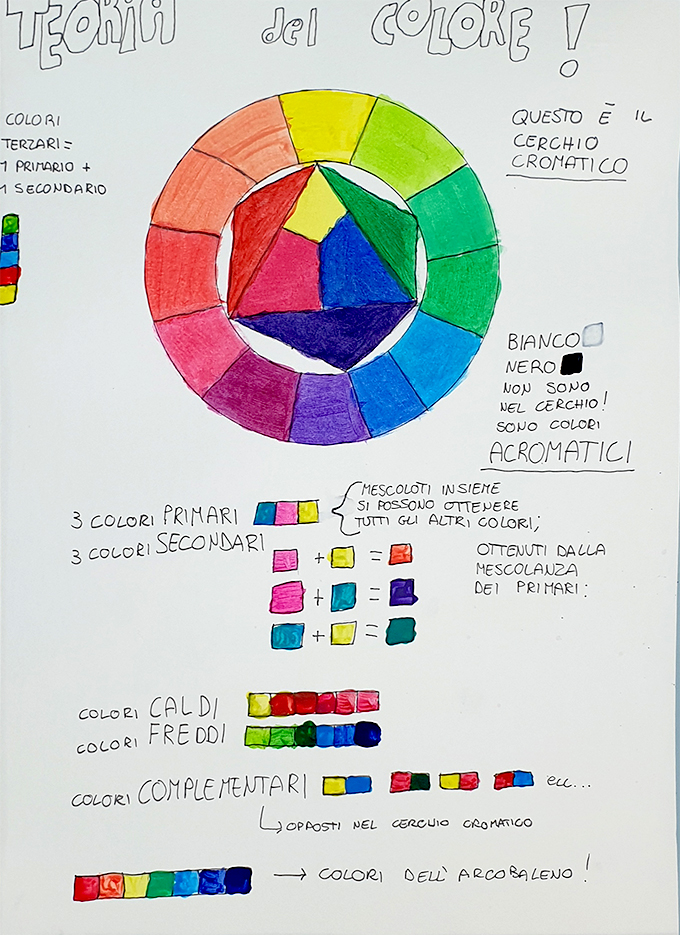 TEORIA del COLORE!
COLORI
TERZARI =
1 PRIMARIO +
1 SECONDARIO
QUESTO È IL
CERCHIO
CROMATICO
BIANCO
NERO
NON SONO
NEL CERCHIO!
SONO COLORI
ACROMATICI
3 COLORI PRIMARI
MESCOLOTI INSIEME
SI POSSONO OTTENERE
TUTTI GLI ALTRI COLORI;
3 COLORI SECONDARI
+ =
+ =
+ =
OTTENUTI DALLA
MESCOLANZA
DEI PRIMARI:
COLORI CALDI
COLORI FREDDI
COLORI COMPLEMENTARI
ecc...
OPPOSTI NEL CERCHIO CROMATICO
COLORI DELL'ARCOBALENO!